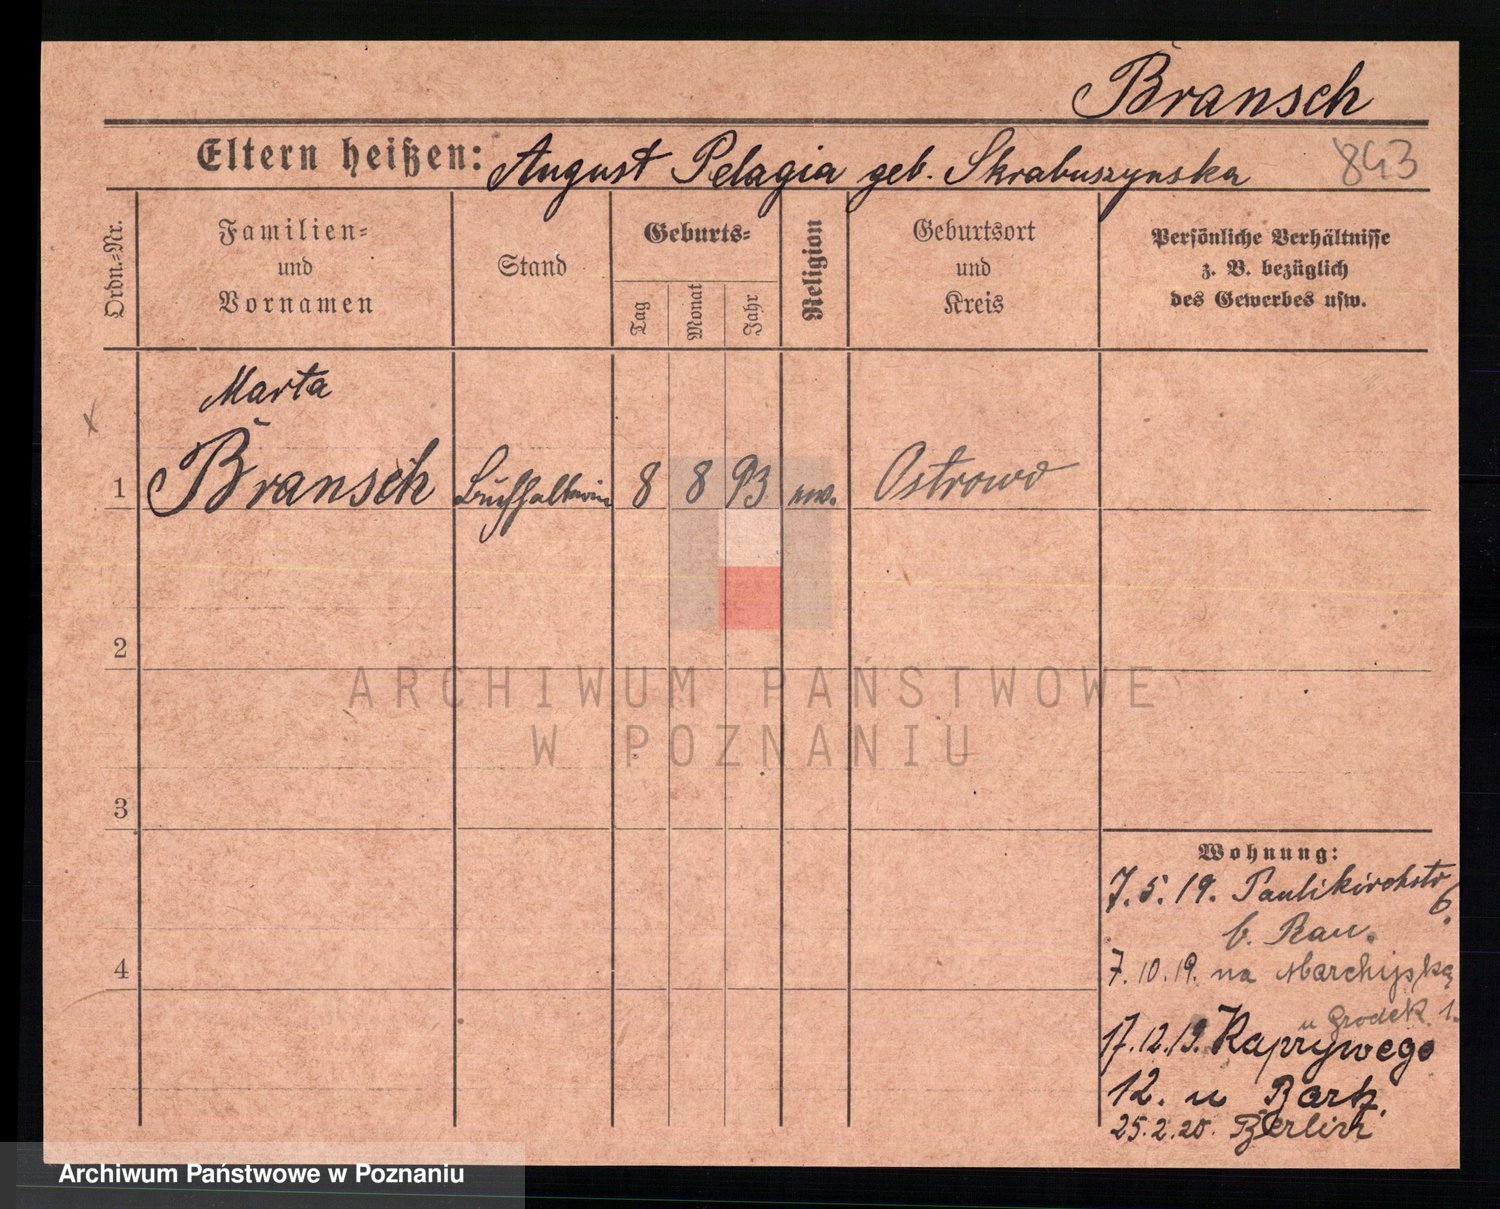 Bransch
Eltern heißen: August Pelagia geb. Skrabuszynska 843
Ordn.-Nr.
Familien- und Vornamen
Stand
Geburts-
Tag
Monat
Jahr
Religion
Geburtsort und Kreis
Persönliche Verhältnisse
z. B. bezüglich
des Gewerbes usw.
Marta
1 Bransch Buchhalterin 8 8 93 Ostrowo
2
3
4
Wohnung:
7.5.19. Paulikirchstr 6.
b. Rau.
7.10.19. na
u Grodek. 1.
17.12.19. Kaprywego
12. u Bark.
25.2.20. Berlin
ARCHIWUM PAŃSTWOWE
W POZNANIU
Archiwum Państwowe w Poznaniu